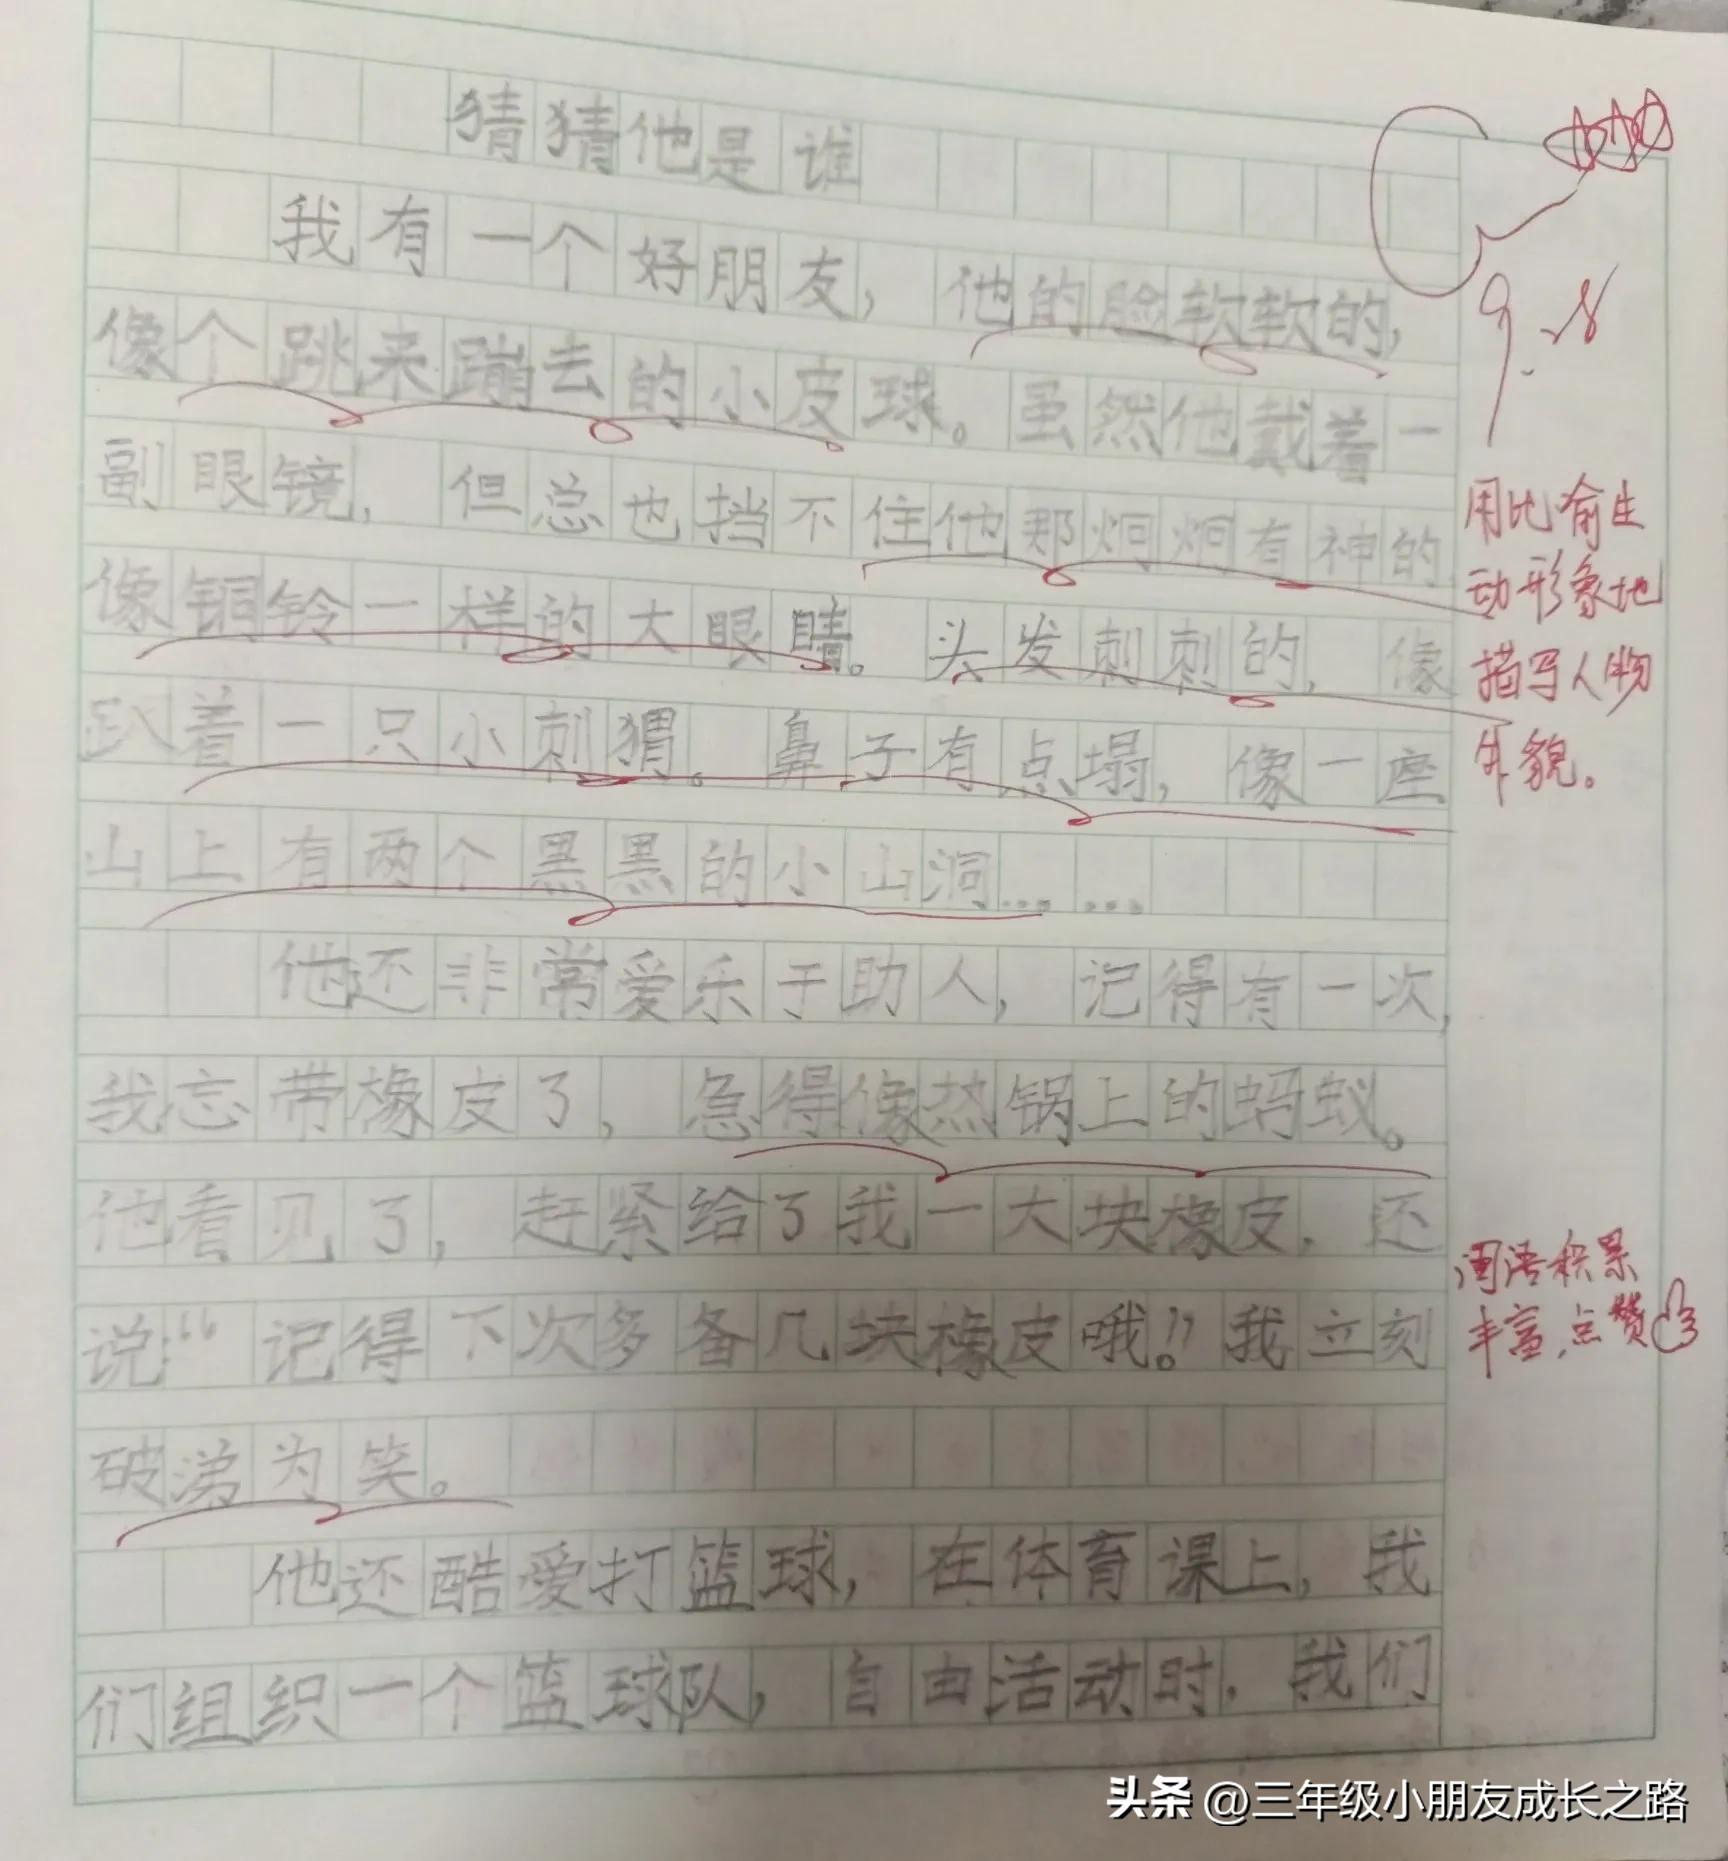 猜猜他是谁
我有一个好朋友，他的脸软软的，
像个跳来蹦去的小皮球。虽然他戴着一
副眼镜，但总也挡不住他那炯炯有神的
像铜铃一样的大眼睛。头发刺刺的，像
趴着一只小刺猬。鼻子有点塌，像一座
山上有两个黑黑的小山洞……
他还非常爱乐于助人，记得有一次，
我忘带橡皮了，急得像热锅上的蚂蚁。
他看见了，赶紧给了我一大块橡皮，还
说：“记得下次多备几块橡皮哦！”我立刻
破涕为笑。
他还酷爱打篮球，在体育课上，我
们组织一个篮球队，自由活动时，我们
9.8
用比喻生
动形象地
描写人物
外貌。
词语积累
丰富，点赞
头条 @三年级小朋友成长之路